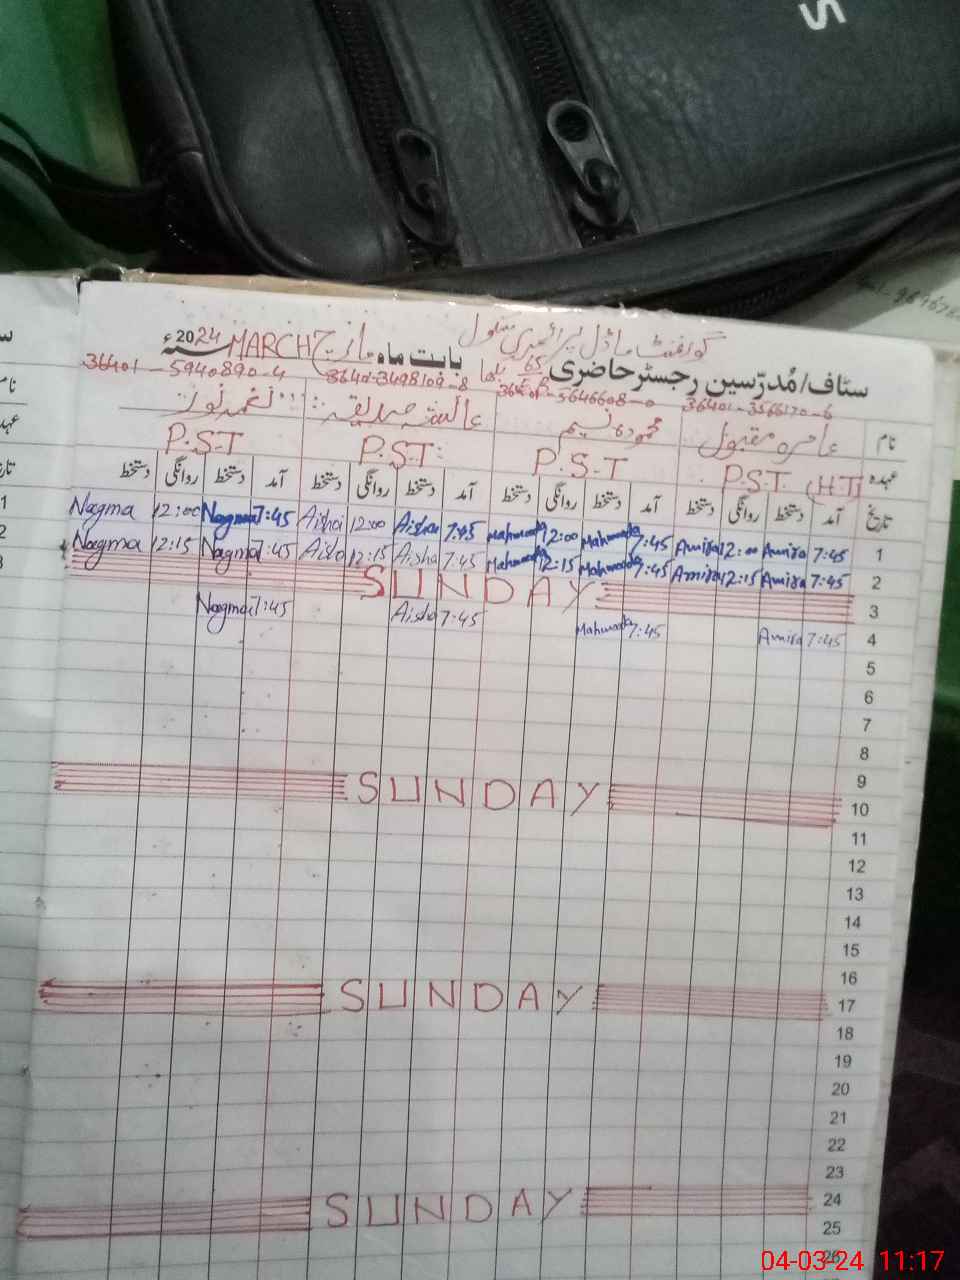 S
گورنمنٹ ماڈل پرائمری سکول
سٹاف/مُدرّسین رجسٹر حاضری 65 بابت ماہ مارچ MARCH 2024ء
36401-3566170-6 36401-5646608-0 36401-3498109-8 36401-5940890-4
نام عامرہ مقبول محمودہ نسیم عائشہ صدیقہ نغمہ نور
عہدہ P.S.T (H.T) P.S.T P.S.T P.S.T
تاریخ آمد دستخط روانگی دستخط آمد دستخط روانگی دستخط آمد دستخط روانگی دستخط آمد دستخط روانگی دستخط
1 7:45 Amira 12:00 Amira 7:45 Mahmooda 12:00 Mahmooda 7:45 Aisha 12:00 Aisha 7:45 Nagma 12:00 Nagma
2 7:45 Amira 12:15 Amira 7:45 Mahmooda 12:15 Mahmooda 7:45 Aisha 12:15 Aisha 7:45 Nagma 12:15 Nagma
3 SUNDAY
4 7:45 Amira 7:45 Mahmooda 7:45 Aisha 7:45 Nagma
5
6
7
8
9
10 SUNDAY
11
12
13
14
15
16
17 SUNDAY
18
19
20
21
22
23
24 SUNDAY
25
26
04-03-24 11:17